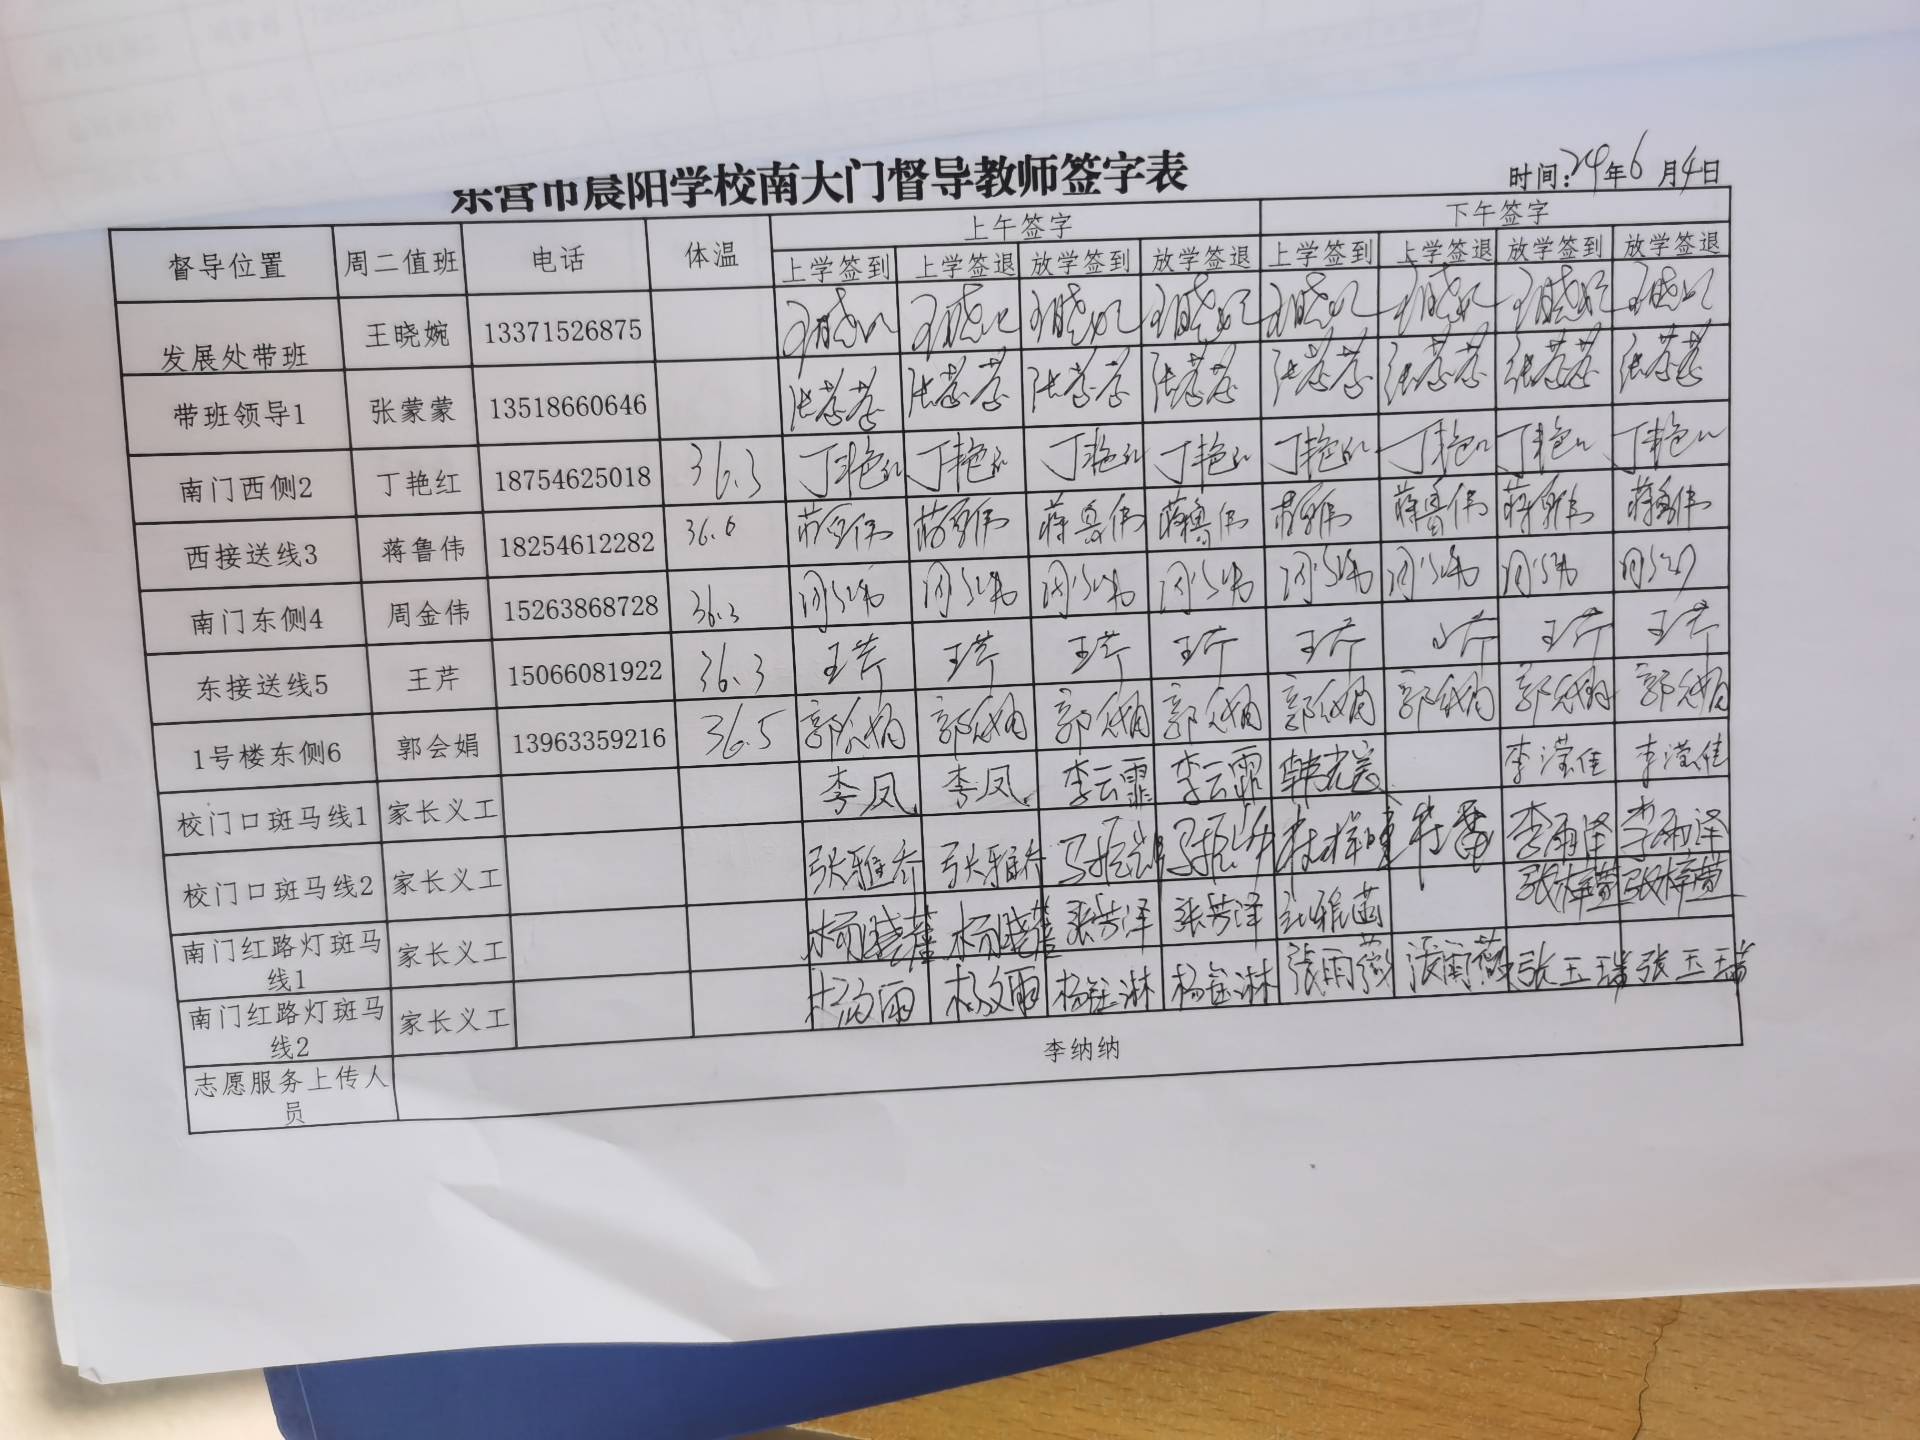 东营市晨阳学校南大门督导教师签字表
时间:24年6月4日
督导位置 周二值班 电话 体温 上午签字 下午签字
上学签到 上学签退 放学签到 放学签退 上学签到 上学签退 放学签到 放学签退
发展处带班 王晓婉 13371526875 王晓婉 王晓婉 王晓婉 王晓婉 王晓婉 王晓婉 王晓婉 王晓婉
带班领导1 张蒙蒙 13518660646 张蒙蒙 张蒙蒙 张蒙蒙 张蒙蒙 张蒙蒙 张蒙蒙 张蒙蒙 张蒙蒙
南门西侧2 丁艳红 18754625018 36.3 丁艳红 丁艳红 丁艳红 丁艳红 丁艳红 丁艳红 丁艳红 丁艳红
西接送线3 蒋鲁伟 18254612282 36.6 蒋鲁伟 蒋鲁伟 蒋鲁伟 蒋鲁伟 蒋鲁伟 蒋鲁伟 蒋鲁伟 蒋鲁伟
南门东侧4 周金伟 15263868728 36.3 周金伟 周金伟 周金伟 周金伟 周金伟 周金伟 周金伟 周金伟
东接送线5 王芹 15066081922 36.3 王芹 王芹 王芹 王芹 王芹 王芹 王芹 王芹
1号楼东侧6 郭会娟 13963359216 36.5 郭会娟 郭会娟 郭会娟 郭会娟 郭会娟 郭会娟 郭会娟 郭会娟
校门口斑马线1 家长义工 李凤 李凤 李云霏 李云霏 李滢佳 李滢佳
校门口斑马线2 家长义工 张雅乔 张雅乔 李雨泽 李雨泽
南门红路灯斑马线1 家长义工 张芳泽 张芳泽 张梓萱 张梓萱
南门红路灯斑马线2 家长义工 杨钰淋 杨钰淋 張雨薇 张玉瑞 张玉瑞
志愿服务上传人员 李纳纳